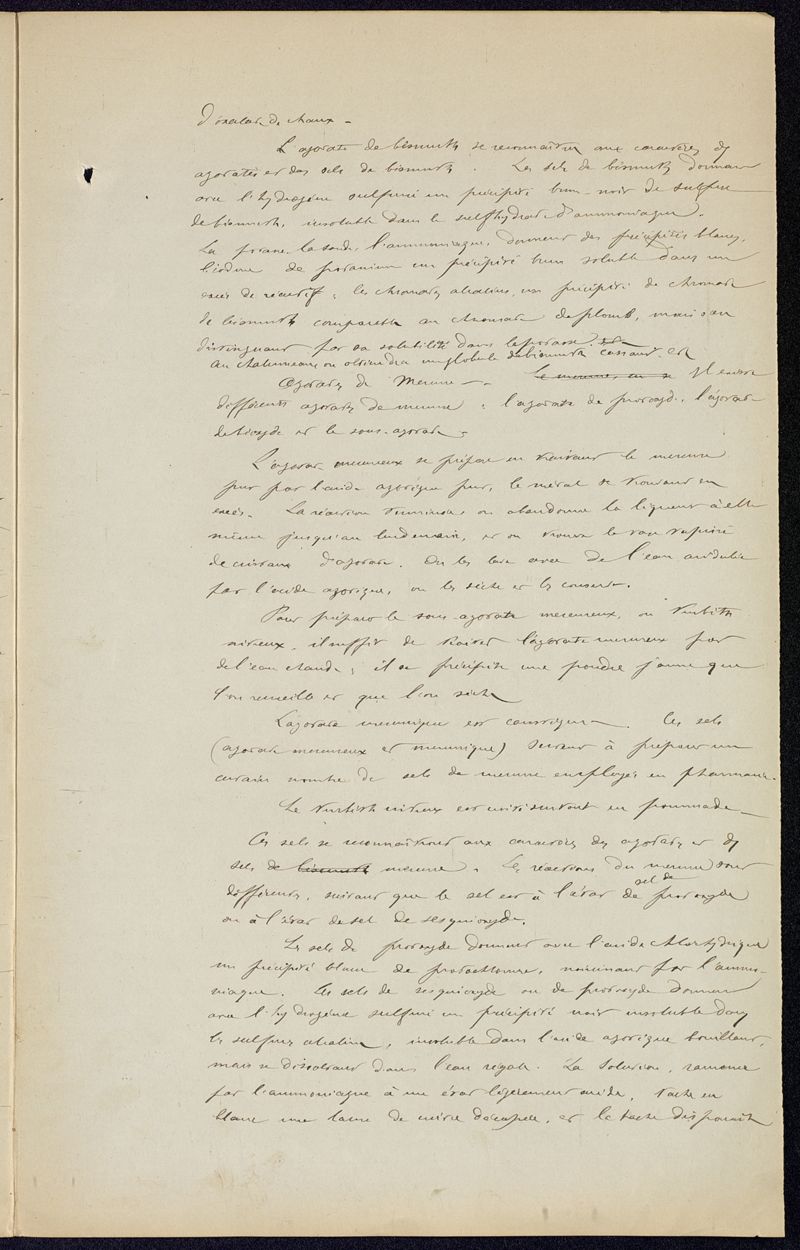 d'oxalate de chaux –
L'azotate de bismuth se reconnaîtra aux caractères des
azotates et des sels de bismuth. Les sels de bismuth donnent
avec l'hydrogène sulfuré un précipité brun-noir de sulfure
de bismuth, insoluble dans le sulfhydrate d'ammoniaque.
La potasse, la soude, l'ammoniaque, donnent des précipités blancs,
l'iodure de potassium un précipité brun soluble dans un
excès de réactif ; les chromates alcalins, un précipité de chromate
de bismuth comparable au chromate de plomb, mais s'en
distinguant par sa solubilité dans la potasse
au chalumeau on obtiendra un globule de bismuth cassant
Azotates de Mercure –. Le mercure, en Il existe
différents azotates de mercure : l'azotate de protoxyde, l'azotate
de bioxyde et le sous-azotate.
L'azotate mercureux se prépare en traitant le mercure
pur par l'acide azotique pur, le métal se trouvant en
excès. La réaction terminée on abandonne la liqueur à elle
même jusqu'au lendemain, et on trouve le vase tapissé
de cristaux d'azotate. On les lave avec de l'eau acidulée
par l'acide azotique, on les sèche et les conserve.
Pour préparer le sous-azotate mercureux, ou turbith
nitreux, il suffit de traiter l'azotate mercureux par
de l'eau chaude ; il se précipite une poudre jaune que
l'on recueille et que l'on sèche
L'azotate mercurique est Ces sels
(azotate mercureux et mercurique) servent à préparer un
certain nombre de sels de mercure employés en pharmacie.
Le turbith nitreux est usité surtout en pommade –
Ces sels se reconnaîtront aux caractères des azotates et des
sels de bismuth mercure. Les réactions du mercure sont
différentes, suivant que le sel est à l'état de sel de protoxyde
ou à l'état de sel de sesquioxyde.
Les sels de protoxyde donnent avec l'acide chlorhydrique
un précipité blanc de protochlorure, noircissant par l'ammo-
niaque. Les sels de sesquioxyde ou de protoxyde donnent
avec l'hydrogène sulfuré un précipité noir insoluble dans
les sulfures alcalins, insoluble dans l'acide azotique bouillant,
mais se dissolvant dans l'eau régale. La solution, ramenée
par l'ammoniaque à un état légèrement acide, tache en
blanc une lame de cuivre décapée, et la tache disparaît